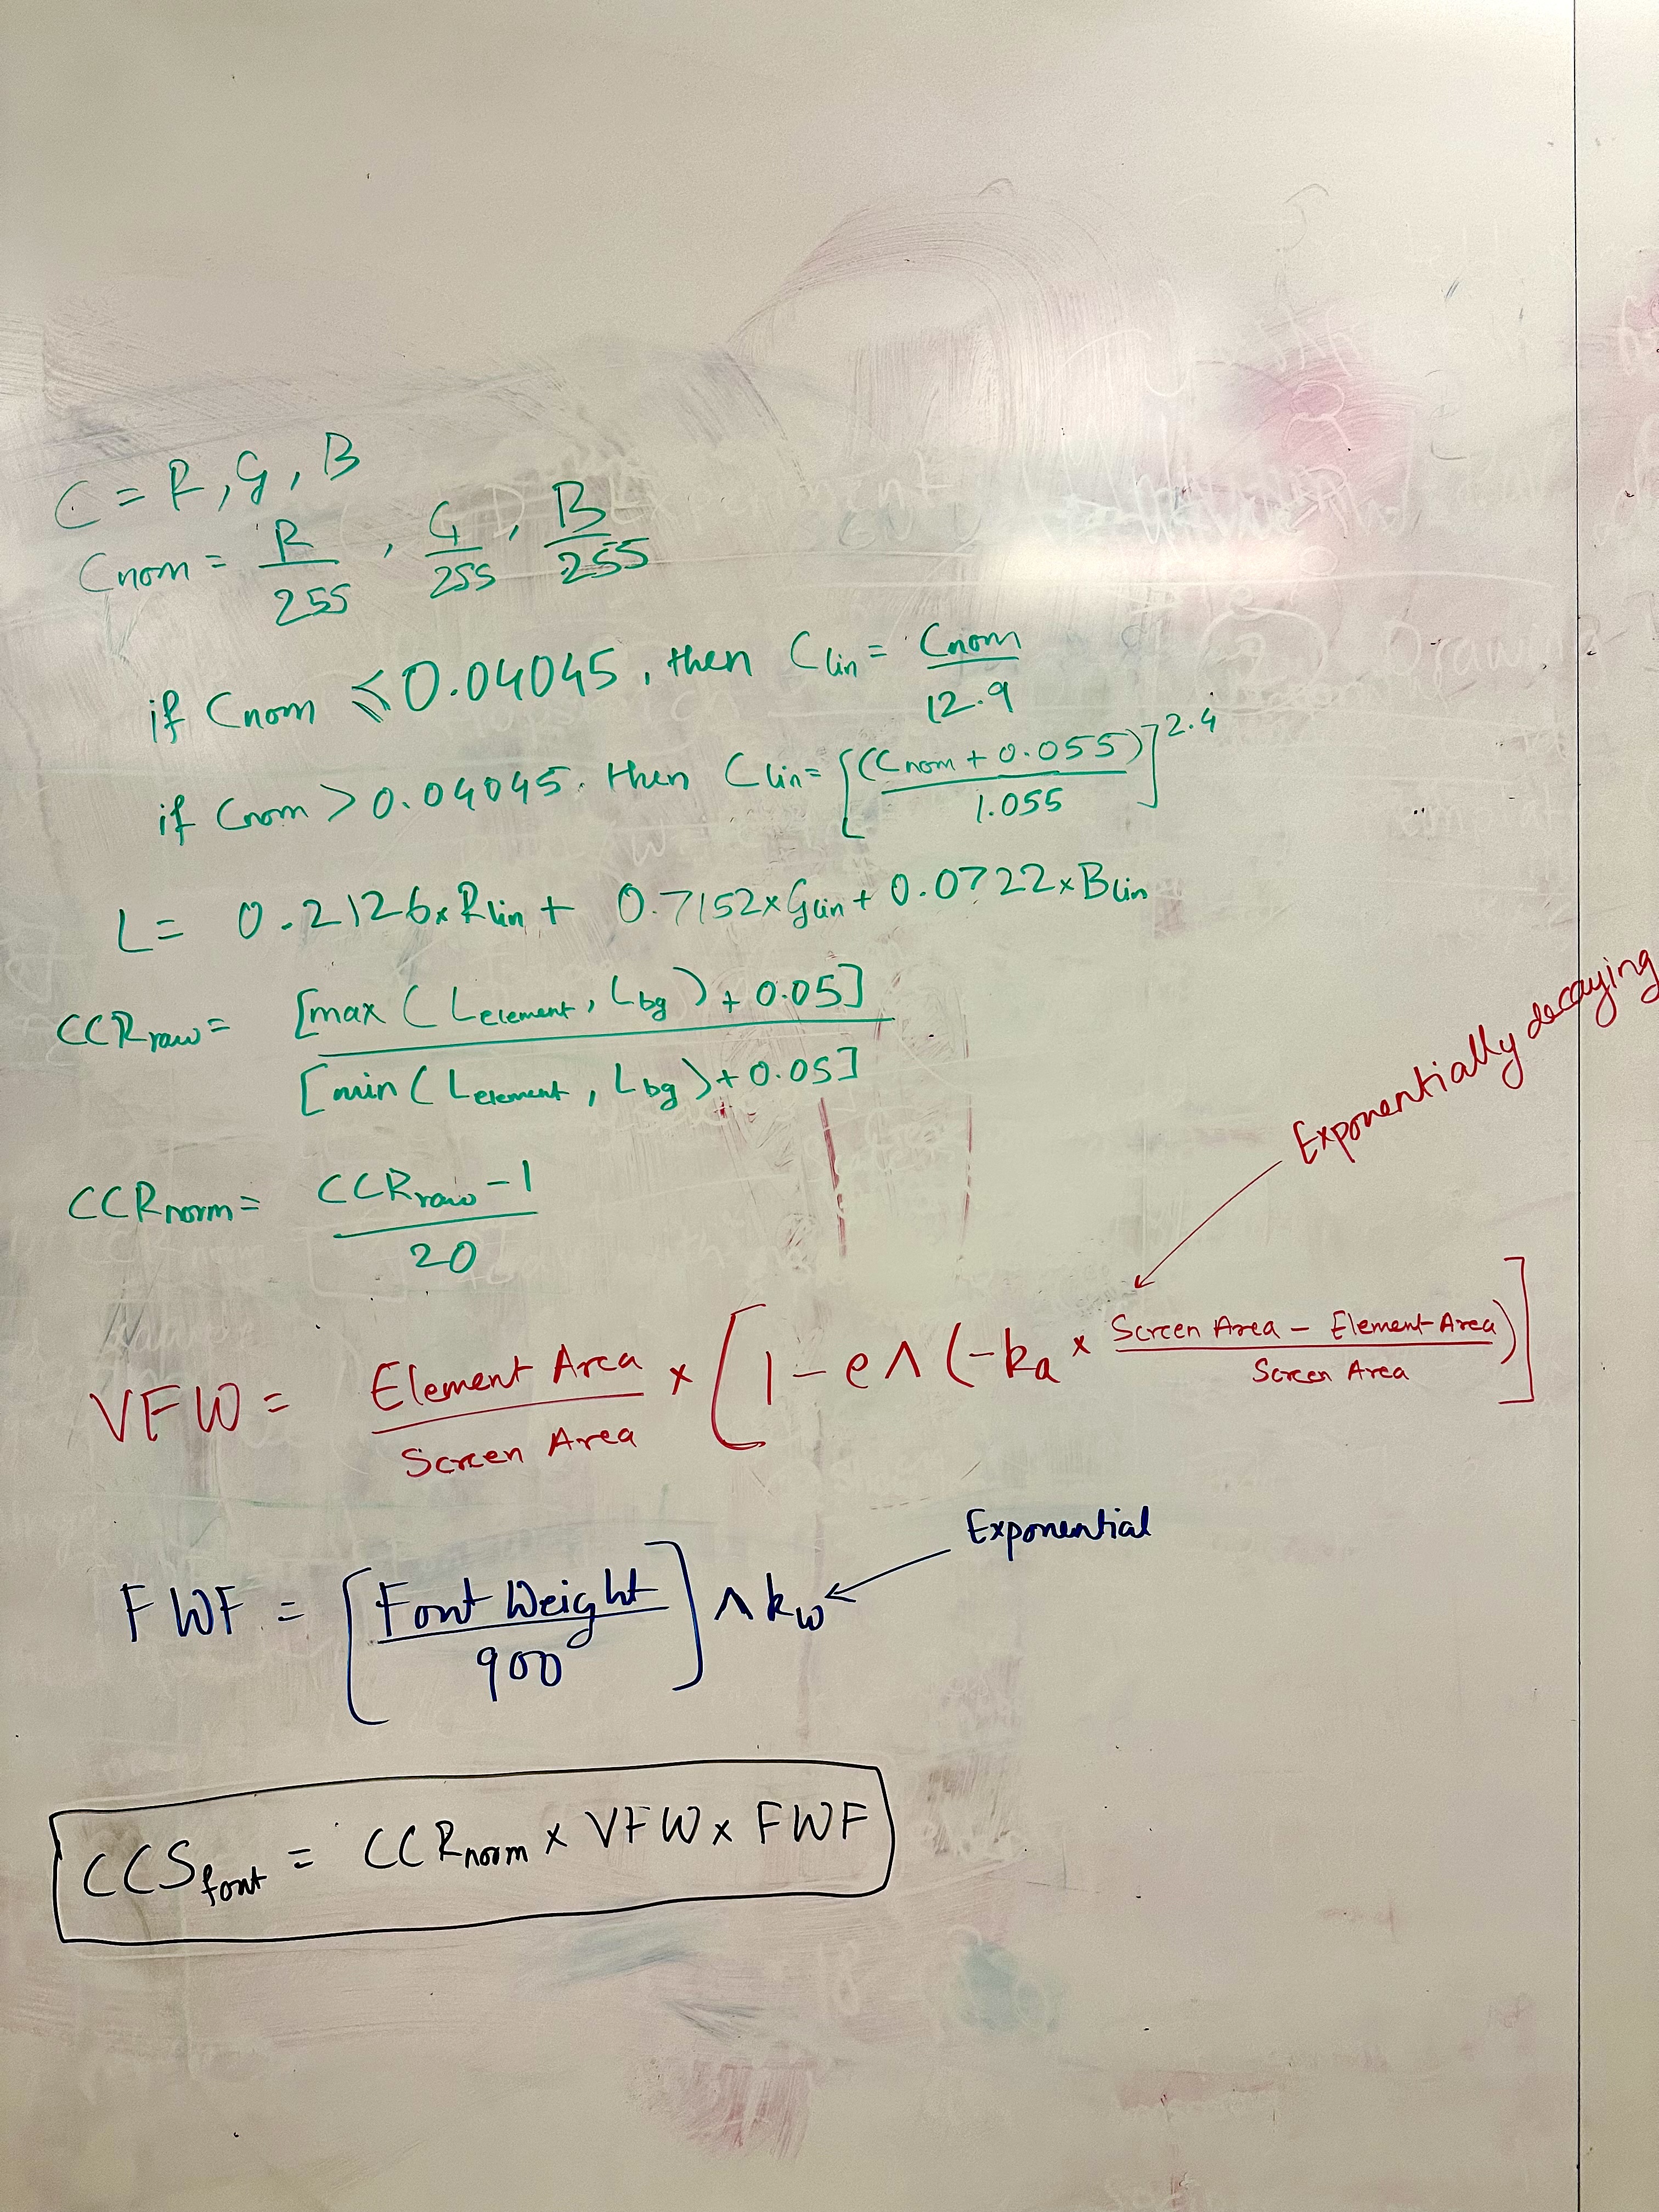 C = R, G, B
Cnom = R/255, G/255, B/255
if Cnom ≤ 0.04045, then Clin = Cnom/12.9
if Cnom > 0.04045, then Clin = [(Cnom + 0.055)/1.055]^2.4
L = 0.2126 × Rlin + 0.7152 × Glin + 0.0722 × Blin
CCRraw = [max (Lelement, Lbg) + 0.05] / [min (Lelement, Lbg) + 0.05]
Exponentially decaying
CCRnorm = CCRraw - 1 / 20
VFW = Element Area / Screen Area × [1 - e ∧ (-ka × Screen Area - Element Area / Screen Area)]
Exponential
FWF = [Font Weight / 900] ∧ kw
CCSfont = CCRnorm × VFW × FWF